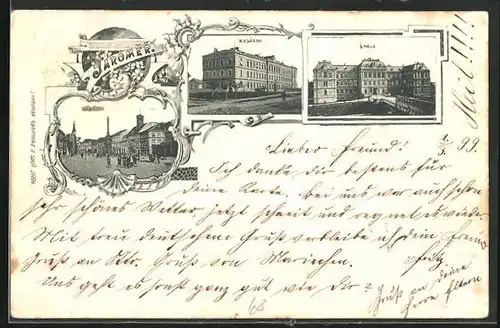 JAROMĚŘ.
KASÁRNY
ŠKOLA
NÁMĚSTÍ
Heil!!!!
1/3 99.
Lieber Freund!
Ich danke dir bestens für
deine Karte. Bei uns war auch schon
sehr schönes Wetter jetzt schneit und regnet es wieder.
Mit treu deutschem Gruß verbleibe ich dein Freund
Gruß an Gruß von Mariechen.
Was geht es sonst ganz gut wie Dir?
Gruß an deine
Herrn Eltern
68